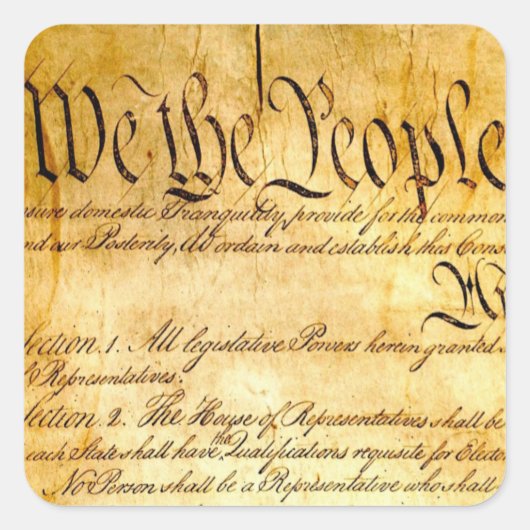 We the People
sure domestic Tranquility, provide for the common
nd our Posterity, do ordain and establish this Cons
Section. 1. All legislative Powers herein granted
Representatives.
Section. 2. The House of Representatives shall be
each State shall have the Qualifications requisite for Elect
No Person shall be a Representative who shall